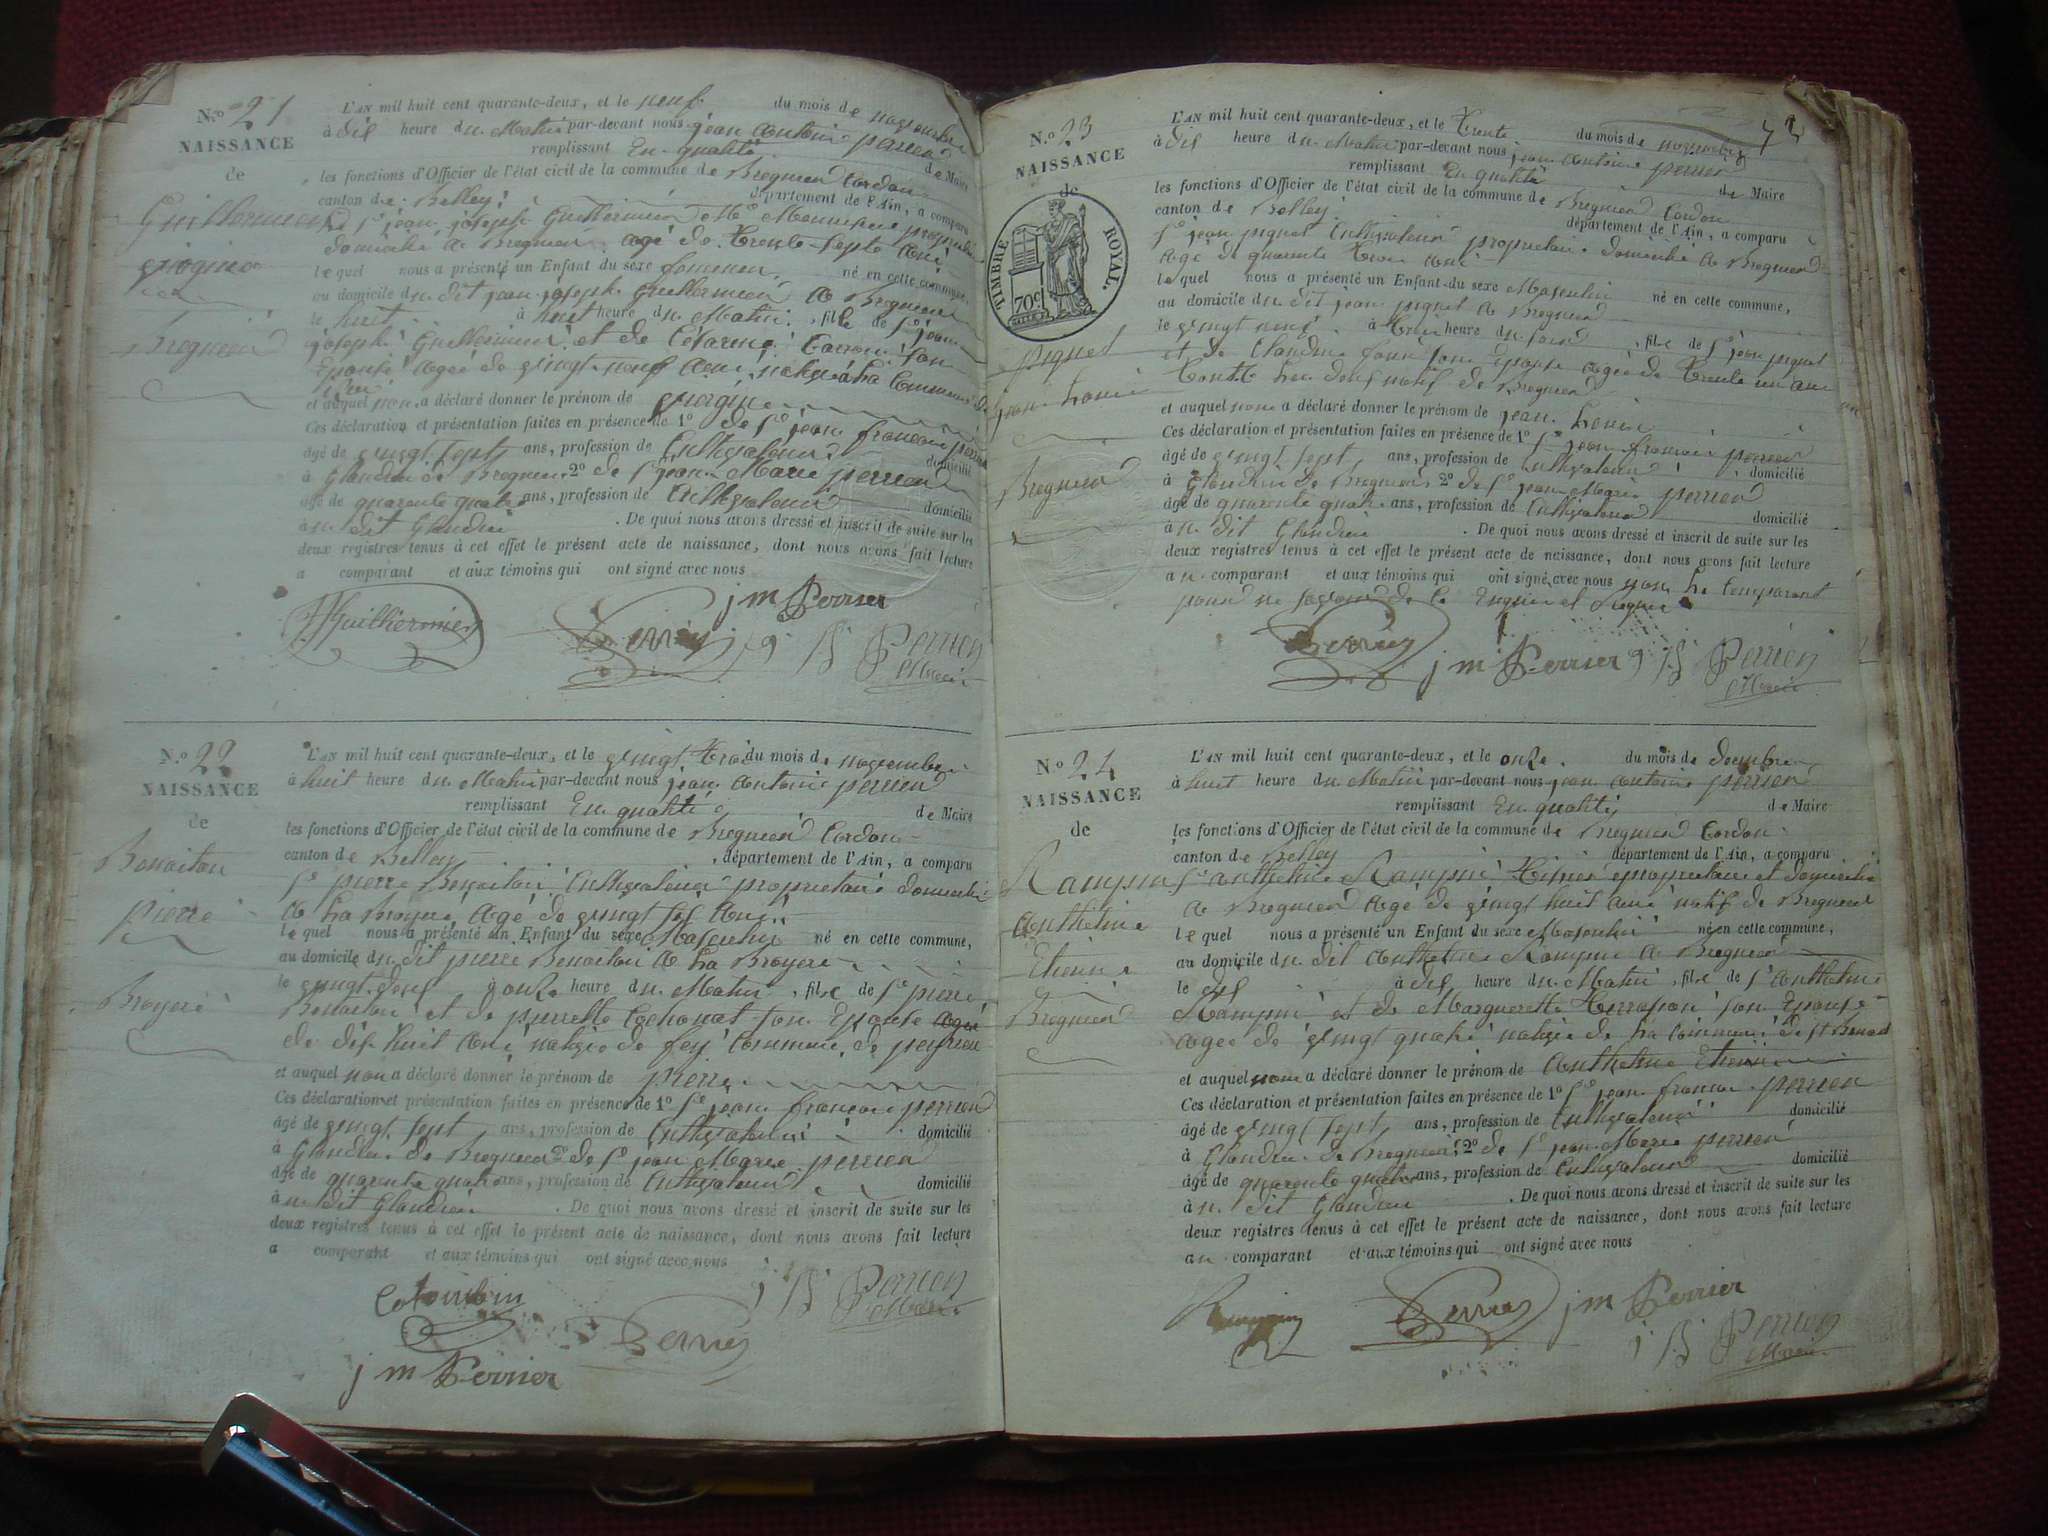 N.o 21
NAISSANCE
de
Guilliermier
giorgine
Bregnier
L'AN mil huit cent quarante-deux, et le neuf du mois de novembre
à dis heure du Matin par-devant nous jean antoine perrier
remplissant En qualité de Maire
les fonctions d'Officier de l'état civil de la commune de Bregnier Cordon
canton de Belley département de l'Ain, a comparu
Sr jean joseph Guilliermier Md Menusier proprietaire
domicilié a Bregnier agé de trente sept ans
lequel nous a présenté un Enfant du sexe feminin né en cette commune,
au domicile du dit jean joseph Guilliermier a Bregnier
le huit à huit heure du Matin, fille de Sr jean
joseph Guilliermier et de Césarine son
Epouse agée de vingt neuf ans, native de la Commune de
et auquel nom a déclaré donner le prénom de giorgine
Ces déclaration et présentation faites en présence de 1o de Sr jean francois perrier
âgé de vingt sept ans, profession de Cultivateur domicilié
à Glandieu de Bregnier 2o de Sr jean Marie perrier
âgé de quarente quatre ans, profession de Cultivateur domicilié
à u dit Glandieu . De quoi nous avons dressé et inscrit de suite sur les
deux registres tenus à cet effet le présent acte de naissance, dont nous avons fait lecture
a comparant et aux témoins qui ont signé avec nous
jm Perrier
Guilliermier Perrier Perrier
Maire
N.o 22
NAISSANCE
de
Benoiton
pierre
Broyere
L'AN mil huit cent quarante-deux, et le vingt trois du mois de novembre
à huit heure du Matin par-devant nous jean antoine perrier
remplissant En qualité de Maire
les fonctions d'Officier de l'état civil de la commune de Bregnier Cordon
canton de Belley, département de l'Ain, a comparu
Sr pierre Benoiton Cultivateur proprietaire domicilié
a La Broyere agé de vingt six ans
lequel nous a présenté un Enfant du sexe Masculin né en cette commune,
au domicile du dit pierre Benoiton a La Broyere
le vingt deux à onze heure du Matin, fils de Sr pierre
Benoiton et de pierrette Cochonat son Epouse agée
de dis huit ans native de fey Commune de peyrieu
et auquel nom a déclaré donner le prénom de pierre
Ces déclaration et présentation faites en présence de 1o Sr jean francois perrier
âgé de vingt sept ans, profession de Cultivateur domicilié
à Glandieu de Bregnier 2o de Sr jean Marie perrier
âgé de quarente quatre ans, profession de Cultivateur domicilié
à u dit Glandieu . De quoi nous avons dressé et inscrit de suite sur les
deux registres tenus à cet effet le présent acte de naissance, dont nous avons fait lecture
a comparant et aux témoins qui ont signé avec nous
Perrier
Maire
Perrier
jm Perrier
73
N.o 23
NAISSANCE
de
TIMBRE ROYAL.
70c
piquet
jean Louis
Bregnier
L'AN mil huit cent quarante-deux, et le trente du mois de novembre
à dis heure du Matin par-devant nous jean antoine perrier
remplissant En qualité de Maire
les fonctions d'Officier de l'état civil de la commune de Bregnier Cordon
canton de Belley département de l'Ain, a comparu
Sr jean piquet Cultivateur proprietaire domicilié a Bregnier
agé de quarante trois ans
lequel nous a présenté un Enfant du sexe Masculin né en cette commune,
au domicile du dit jean piquet a Bregnier
le vingt neuf à trois heure du soir, fils de Sr jean piquet
et de Claudine son Epouse agée de trente un ans
natif de Bregnier
et auquel nom a déclaré donner le prénom de jean Louis
Ces déclaration et présentation faites en présence de 1o Sr jean francois perrier
âgé de vingt sept ans, profession de Cultivateur domicilié
à Glandieu de Bregnier 2o de Sr jean Marie perrier
âgé de quarente quatre ans, profession de Cultivateur domicilié
à u dit Glandieu . De quoi nous avons dressé et inscrit de suite sur les
deux registres tenus à cet effet le présent acte de naissance, dont nous avons fait lecture
a u comparant et aux témoins qui ont signé avec nous non Le Comparant
pour ne savoir de ce Enquis et Requis
Perrier jm Perrier Perrier
Maire
N.o 24
NAISSANCE
de
Rampin
anthelme
Etienne
Bregnier
L'AN mil huit cent quarante-deux, et le onze du mois de Decembre
à huit heure du Matin par-devant nous jean antoine perrier
remplissant En qualité de Maire
les fonctions d'Officier de l'état civil de la commune de Bregnier Cordon
canton de Belley département de l'Ain, a comparu
Sr anthelme Rampin proprietaire et domicilié
a Bregnier agé de vingt huit ans natif de Bregnier
lequel nous a présenté un Enfant du sexe Masculin né en cette commune,
au domicile du dit anthelme Rampin a Bregnier
le dis à dis heure du Matin, fils de Sr anthelme
Rampin et de Marguerette Terrason son Epouse
agée de vingt quatre native de La Commune de St Benoit
et auquel nom a déclaré donner le prénom de anthelme Etienne
Ces déclaration et présentation faites en présence de 1o Sr jean francois perrier
âgé de vingt sept ans, profession de Cultivateur domicilié
à Glandieu de Bregnier, 2o de Sr jean Marie perrier
âgé de quarente quatre ans, profession de Cultivateur domicilié
à u dit Glandieu . De quoi nous avons dressé et inscrit de suite sur les
deux registres tenus à cet effet le présent acte de naissance, dont nous avons fait lecture
au comparant et aux témoins qui ont signé avec nous
Perrier jm Perrier
Perrier
Maire